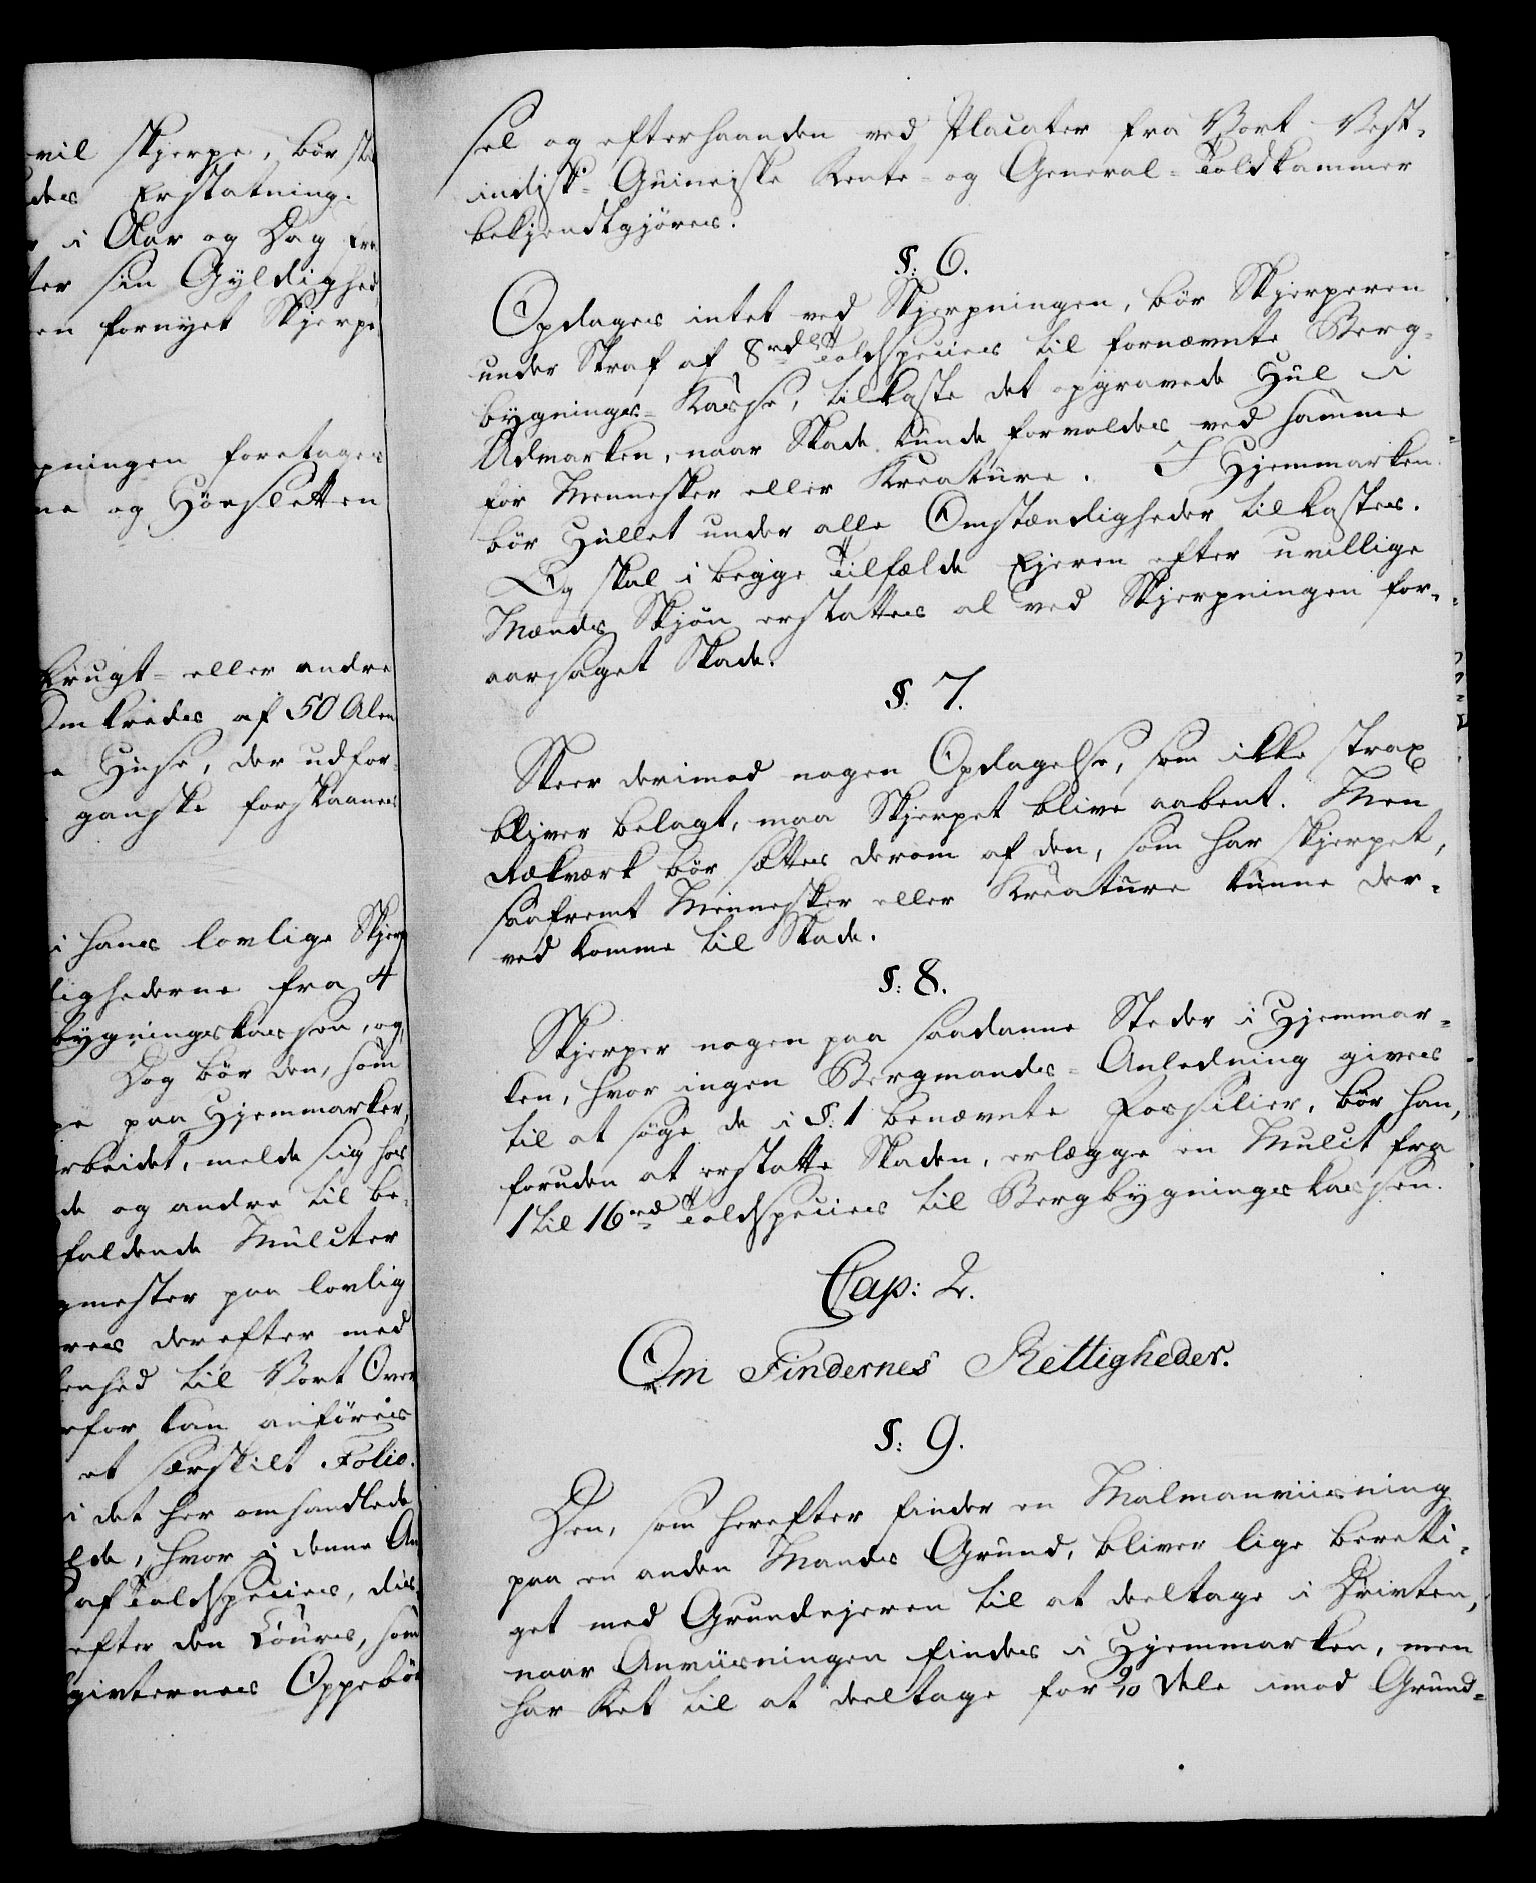 vil skjerpe, bør
des Erstatning.
i Aar og Dag
ter sin Gyldighed
en fornyet Skjerpe
pningen foretages
ne og Høesletten
brugt- eller andre
Omkreds af 50 Alen
Huse, der udfor-
ganske forskaanes
i hans lovlige Skjerp
lighederne fra 4
bygningskassen, og
Dog bør den, som
pe paa Hjemmarken,
rbeidet, melde sig hos
de og andre til be-
faldende Mulcter
gmester paa lovlig
res derefter med
enhed til Vort Over
rfor kan anføres
et særskilt Folio.
i det her omhandlede
lde, hvor i denne An
af Toldspecies, dis
efter den Cours, som
givternes Oppebør
sel og efterhaanden ved Placater fra Vort Vest-
indisk-Guineiske Rente- og General-Toldkammer
bekjendtgjøres.
§: 6.
Opdages intet ved Skjerpningen, bør Skjerperen
under Straf af 8 rd Toldspecies til fornævnte Berg-
bygnings-Kasse, tilkaste det opgravede Hul i
Udmarken, naar Skade kunde forvoldes ved samme
for Mennesker eller Kreature. I Hjemmarken
bør Hullet under alle Omstændigheder tilkastes.
Og skal i begge Tilfælde Ejeren efter uvillige
Mænds Skjøn erstattes al ved Skjerpningen for-
aarsaget Skade.
§: 7.
Skeer derimod nogen Opdagelse, som ikke strax
bliver belagt, maa Skjerpet blive aabent. Men
Rækværk bør sættes derom af den, som har skjerpet,
saafremt Mennesker eller Kreature kunne der-
ved komme til Skade.
§: 8.
Skjerper nogen paa saadanne Steder i Hjemmar-
ken, hvor ingen Bergmands-Anledning gives
til at søge de i §: 1 benævnte Fossilier, bør han,
foruden at erstatte Skaden, erlægge en Mulct fra
1 til 16 rd Toldspecies til Bergbygningskassen.
Cap: 2.
Om Findernes Rettigheder.
§: 9.
Den, som herefter finder en Malmanviisning
paa en anden Mands Grund, bliver lige beretti-
get med Grundejeren til at deeltage i Driften,
naar Anviisningen findes i Hjemmarken, men
har Ret til at deeltage for 9/10 Dele imod Grund-